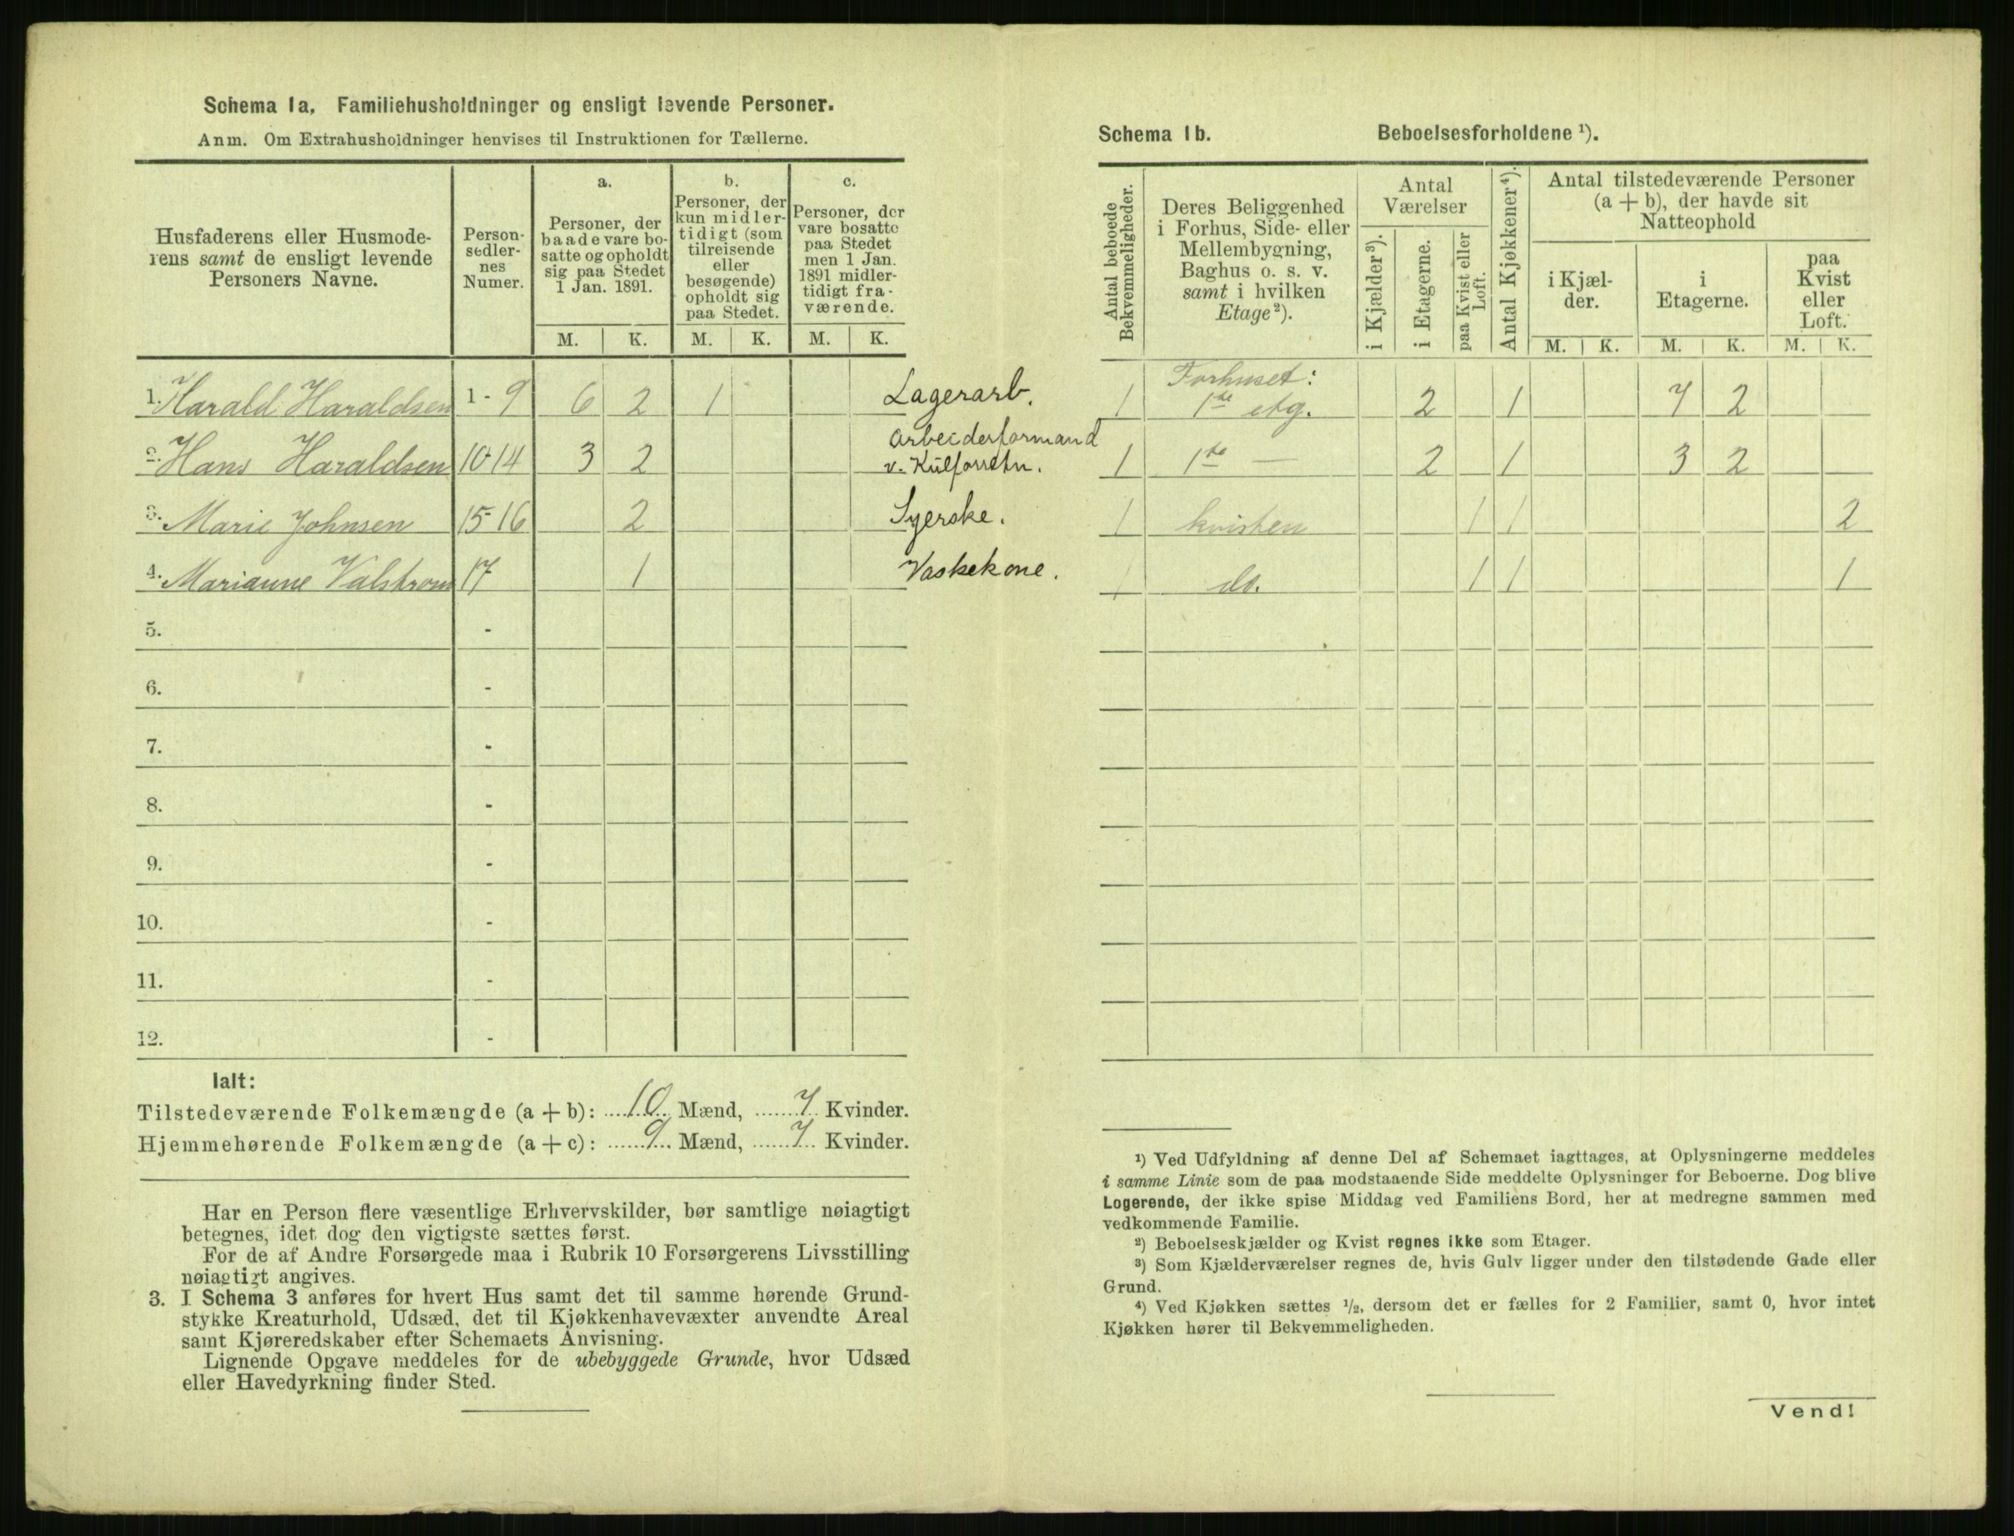 Schema Ia. Familiehusholdninger og ensligt levende Personer.
Anm. Om Extrahusholdninger henvises til Instruktionen for Tællerne.
Husfaderens eller Husmoderens samt de ensligt levende Personers Navne.
Personsedlernes Numer.
a.
Personer, der baade vare bosatte og opholdt sig paa Stedet 1 Jan. 1891.
b.
Personer, der kun midlertidigt (som tilreisende eller besøgende) opholdt sig paa Stedet.
c.
Personer, der vare bosatte paa Stedet men 1 Jan. 1891 midlertidigt fraværende.
M. K. M. K. M. K.
1. Harald Haraldsen 1 - 9 6 2 1 Lagerarb.
2. Hans Haraldsen 10-14 3 2 Arbeiderformand v. Kulforretn.
3. Marie Johnsen 15-16 2 Syerske.
4. Marianne Valstrom 17 1 Vaskekone.
5. -
6. -
7. -
8. -
9. -
10. -
11. -
12. -
Ialt:
Tilstedeværende Folkemængde (a + b): 10 Mænd, 7 Kvinder.
Hjemmehørende Folkemængde (a + c): 9 Mænd, 7 Kvinder.
Har en Person flere væsentlige Erhvervskilder, bør samtlige nøiagtigt
betegnes, idet dog den vigtigste sættes først.
For de af Andre Forsørgede maa i Rubrik 10 Forsørgerens Livsstilling
nøiagtigt angives.
3. I Schema 3 anføres for hvert Hus samt det til samme hørende Grund-
stykke Kreaturhold, Udsæd, det til Kjøkkenhavevæxter anvendte Areal
samt Kjøreredskaber efter Schemaets Anvisning.
Lignende Opgave meddeles for de ubebyggede Grunde, hvor Udsæd
eller Havedyrkning finder Sted.
Schema Ib. Beboelsesforholdene ¹).
Antal beboede Bekvemmeligheder.
Deres Beliggenhed i Forhus, Side- eller Mellembygning, Baghus o. s. v. samt i hvilken Etage²).
Antal Værelser
i Kjælder³).
i Etagerne.
paa Kvist eller Loft.
Antal Kjøkkener⁴).
Antal tilstedeværende Personer (a + b), der havde sit Natteophold
i Kjælder.
i Etagerne.
paa Kvist eller Loft.
M. K. M. K. M. K.
Forhuset:
1 1ste etg. 2 1 7 2
1 1ste — 2 1 3 2
1 kvisten 1 1 2
1 do. 1 1 1
¹) Ved Udfyldning af denne Del af Schemaet iagttages, at Oplysningerne meddeles
i samme Linie som de paa modstaaende Side meddelte Oplysninger for Beboerne. Dog blive
Logerende, der ikke spise Middag ved Familiens Bord, her at medregne sammen med
vedkommende Familie.
²) Beboelseskjælder og Kvist regnes ikke som Etager.
³) Som Kjælderværelser regnes de, hvis Gulv ligger under den tilstødende Gade eller
Grund.
⁴) Ved Kjøkken sættes ½, dersom det er fælles for 2 Familier, samt 0, hvor intet
Kjøkken hører til Bekvemmeligheden.
Vend!